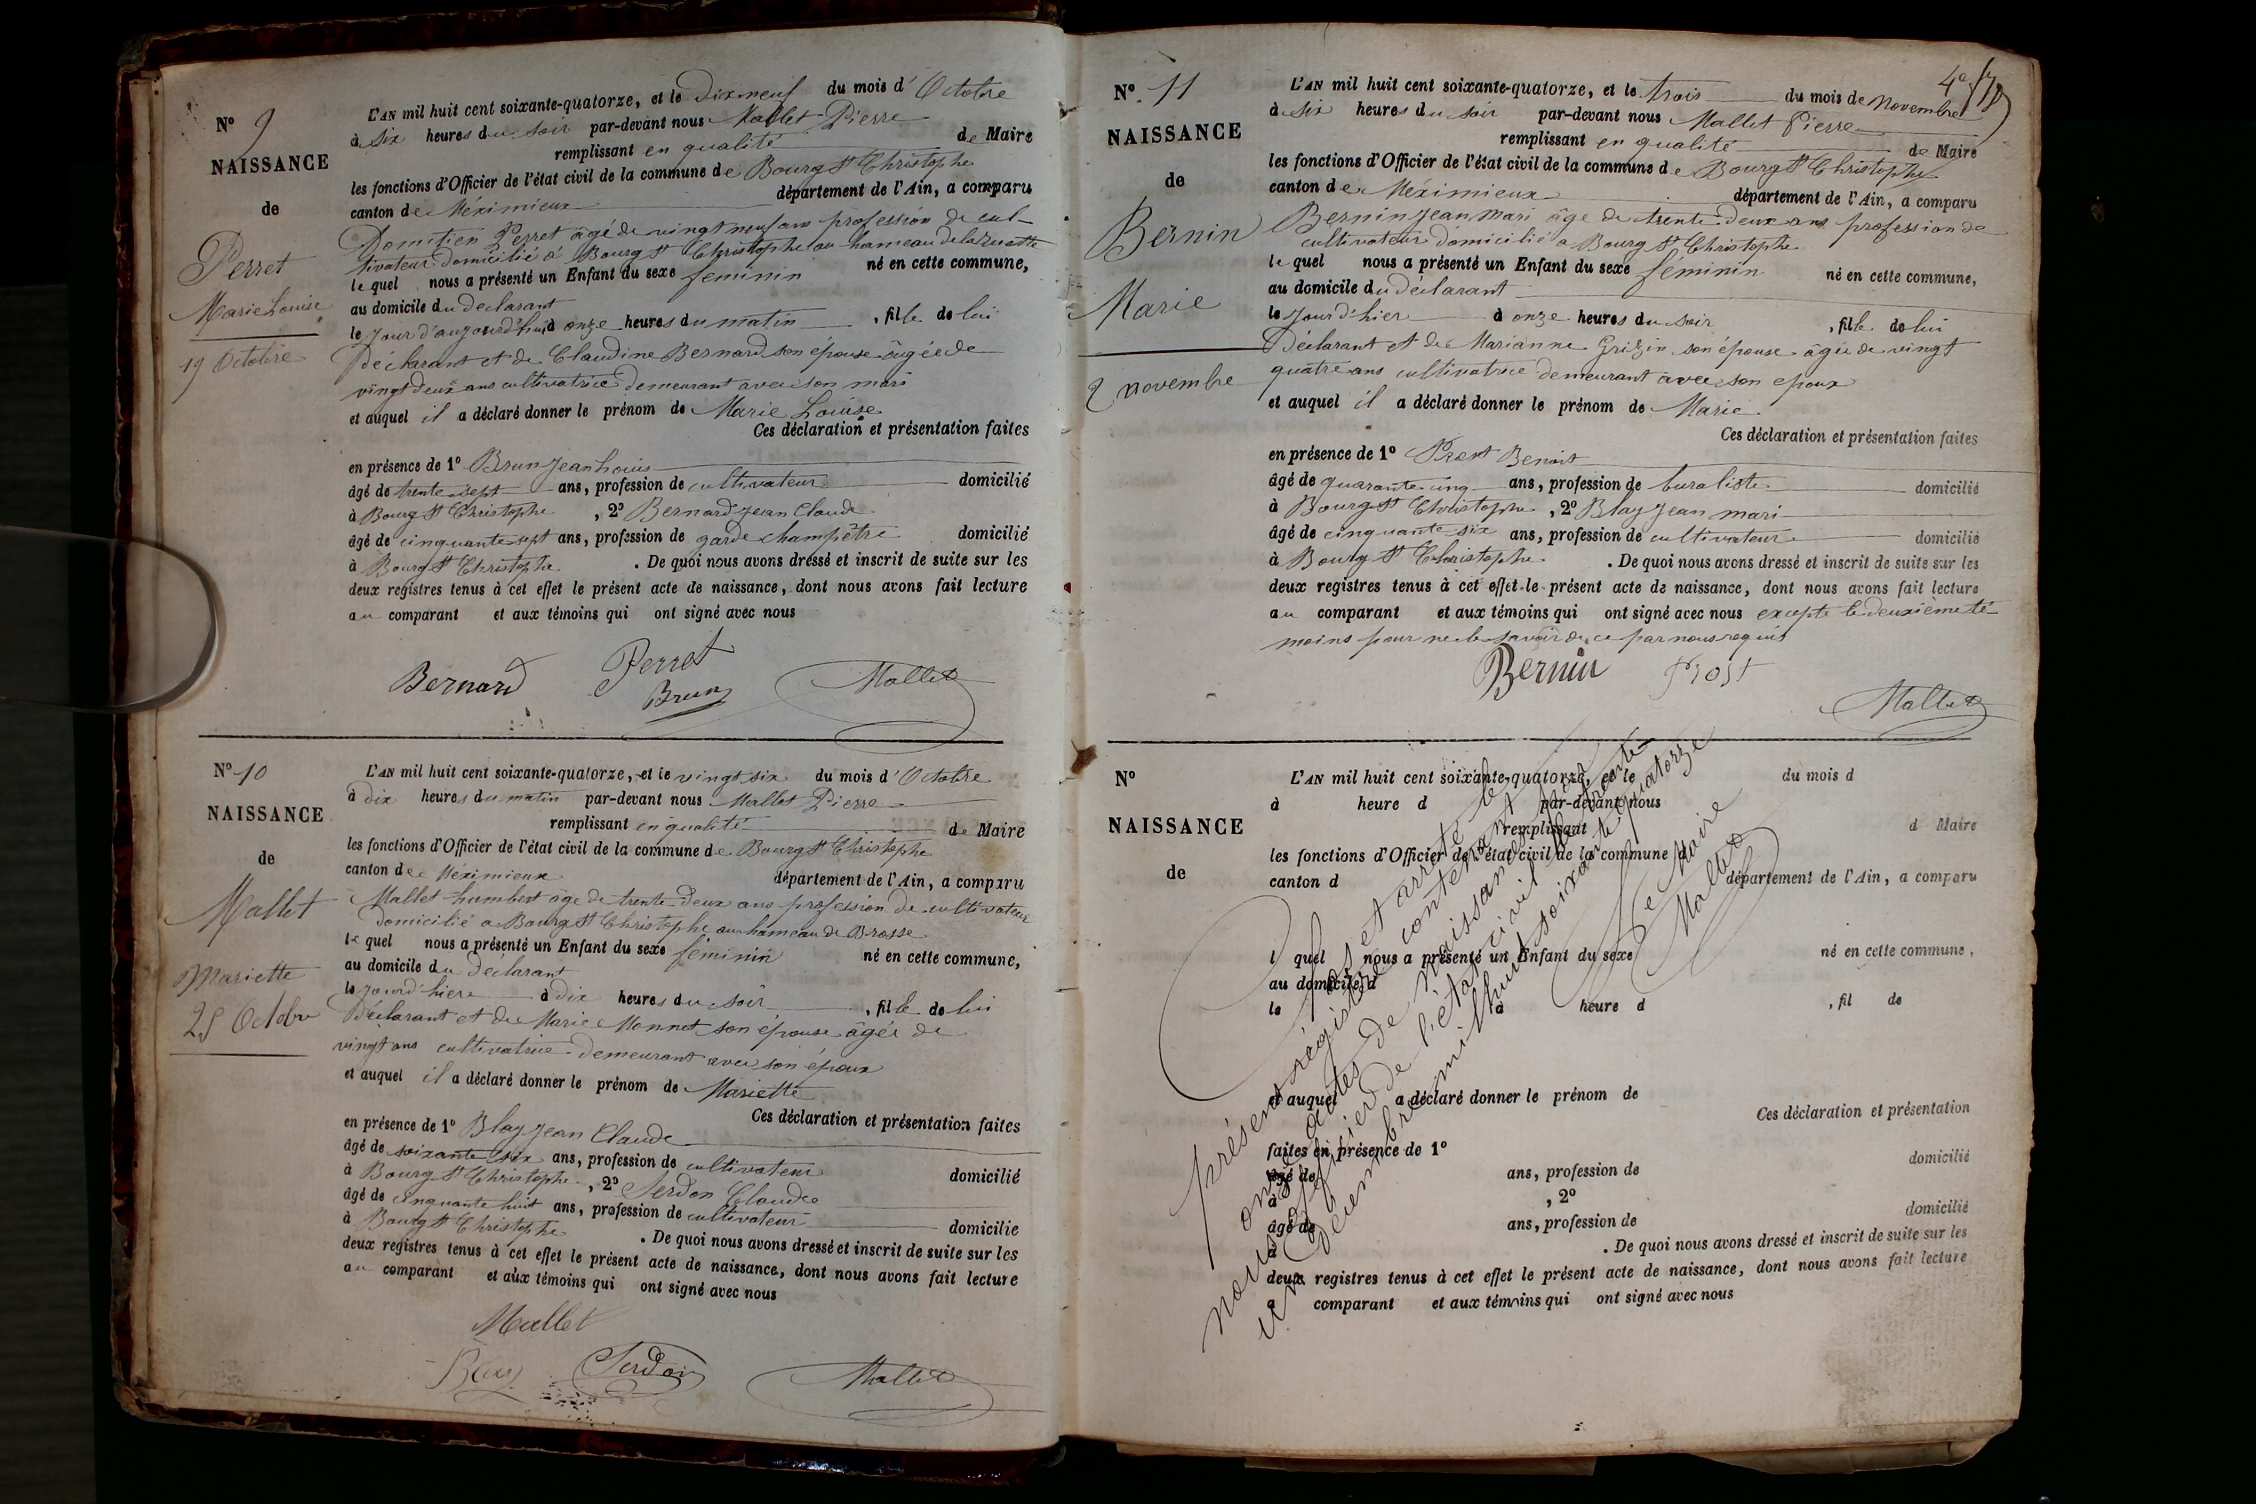 N° 9
NAISSANCE
de
Perret
Marie Louise
19 Octobre
L'AN mil huit cent soixante-quatorze, et le dixneuf du mois d'Octobre
à six heures du soir par-devant nous Mallet Pierre
remplissant en qualité de Maire
les fonctions d'Officier de l'état civil de la commune de Bourg St Christophe
canton de Méximieux département de l'Ain, a comparu
Domitien Perret âgé de vingt neuf ans profession de cul-
tivateur domicilié à Bourg St Christophe au hameau de la
le quel nous a présenté un Enfant du sexe féminin né en cette commune,
au domicile du déclarant
le jour d'aujourd'hui à onze heures du matin, fille de lui
Déclarant et de Claudine Bernard son épouse âgée de
vingt deux ans cultivatrice demeurant avec son mari
et auquel il a déclaré donner le prénom de Marie Louise
Ces déclaration et présentation faites
en présence de 1° Brun Jean Louis
âgé de trente sept ans, profession de cultivateur domicilié
à Bourg St Christophe, 2° Bernard Jean Claude
âgé de cinquante sept ans, profession de garde champêtre domicilié
à Bourg St Christophe. De quoi nous avons dressé et inscrit de suite sur les
deux registres tenus à cet effet le présent acte de naissance, dont nous avons fait lecture
au comparant et aux témoins qui ont signé avec nous
Bernard Perret Mallet
Brun
N° 10
NAISSANCE
de
Mallet
Mariette
25 Octobre
L'AN mil huit cent soixante-quatorze, et le vingt six du mois d'Octobre
à dix heures du matin par-devant nous Mallet Pierre
remplissant en qualité de Maire
les fonctions d'Officier de l'état civil de la commune de Bourg St Christophe
canton de Méximieux département de l'Ain, a comparu
Mallet humbert âgé de trente deux ans profession de cultivateur
domicilié a Bourg St Christophe au hameau de Brosse
le quel nous a présenté un Enfant du sexe féminin né en cette commune,
au domicile du déclarant
le jour d'hier à dix heures du soir, fille de lui
Déclarant et de Marie Monnet son épouse âgée de
vingt ans cultivatrice demeurant avec son époux
et auquel il a déclaré donner le prénom de Mariette
Ces déclaration et présentation faites
en présence de 1° Blay Jean Claude
âgé de soixante six ans, profession de cultivateur domicilié
à Bourg St Christophe, 2° Serdon Claude
âgé de cinquante huit ans, profession de cultivateur domicilié
à Bourg St Christophe. De quoi nous avons dressé et inscrit de suite sur les
deux registres tenus à cet effet le présent acte de naissance, dont nous avons fait lecture
au comparant et aux témoins qui ont signé avec nous
Mallet
Blay Serdon Mallet
4e
N° 11
NAISSANCE
de
Bernin
Marie
2 novembre
L'AN mil huit cent soixante-quatorze, et le trois du mois de novembre
à six heures du soir par-devant nous Mallet Pierre
remplissant en qualité de Maire
les fonctions d'Officier de l'état civil de la commune de Bourg St Christophe
canton de Méximieux département de l'Ain, a comparu
Bernin Jean Mari âgé de trente deux ans profession de
cultivateur domicilié a Bourg St Christophe
le quel nous a présenté un Enfant du sexe féminin né en cette commune,
au domicile du déclarant
le jour d'hier à onze heures du soir, fille de lui
Déclarant et de Marianne son épouse âgée de vingt
quatre ans cultivatrice demeurant avec son epoux
et auquel il a déclaré donner le prénom de Marie
Ces déclaration et présentation faites
en présence de 1° Prost Benoit
âgé de quarante cinq ans, profession de buraliste domicilié
à Bourg St Christophe, 2° Blay Jean mari
âgé de cinquante six ans, profession de cultivateur domicilié
à Bourg St Christophe. De quoi nous avons dressé et inscrit de suite sur les
deux registres tenus à cet effet le présent acte de naissance, dont nous avons fait lecture
au comparant et aux témoins qui ont signé avec nous excepté le deuxième té-
moins pour ne le savoir de ce par nous requis
Bernin Prost
Mallet
N°
NAISSANCE
de
L'AN mil huit cent soixante-quatorze, et le du mois d
à heure d par-devant nous
remplissant d Maire
les fonctions d'Officier de l'état civil de la commune d
canton d département de l'Ain, a comparu
l quel nous a présenté un Enfant du sexe né en cette commune,
au domicile d
le à heure d , fil de
et auquel a déclaré donner le prénom de
Ces déclaration et présentation
faites en présence de 1° domicilié
âgé de ans, profession de
à , 2° domicilié
âgé de ans, profession de
à . De quoi nous avons dressé et inscrit de suite sur les
deux registres tenus à cet effet le présent acte de naissance, dont nous avons fait lecture
a comparant et aux témoins qui ont signé avec nous
Clos et arrêté le
présent régistre contenant
onze actes de naissances par
nous officier de l'état civil le trente
un Décembre mil huit soixante quatorze
Le Maire
Mallet